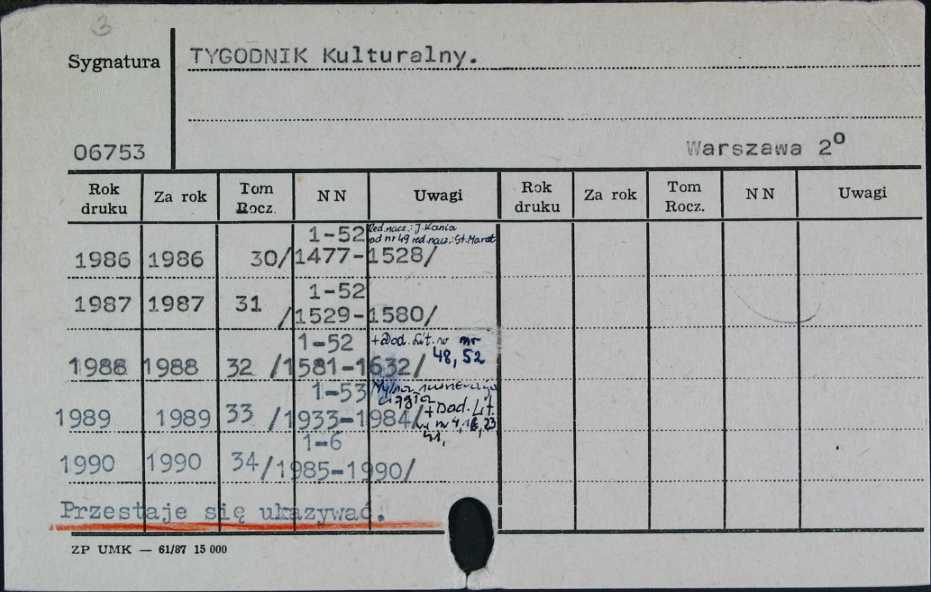 3
Sygnatura
TYGODNIK Kulturalny.
06753
Warszawa 2º
Rok druku Za rok Tom Rocz. NN Uwagi Rok druku Za rok Tom Rocz. NN Uwagi
1-52 Red. nacz.: J. Kania
od nr 49 red. nacz.: St. Marat
1986 1986 30/1477-1528/
1-52
1987 1987 31 /1529-1580/
1-52 + Dod. Lit. w nr
48, 52
1988 1988 32 /1581-1632/
1-53 Mylna numeracja
ciągła
1989 1989 33 /1933-1984/ + Dod. Lit.
w nr 4, 18, 23
1-6
1990 1990 34/1985-1990/
Przestaje się ukazywać.
ZP UMK — 61/87 15 000